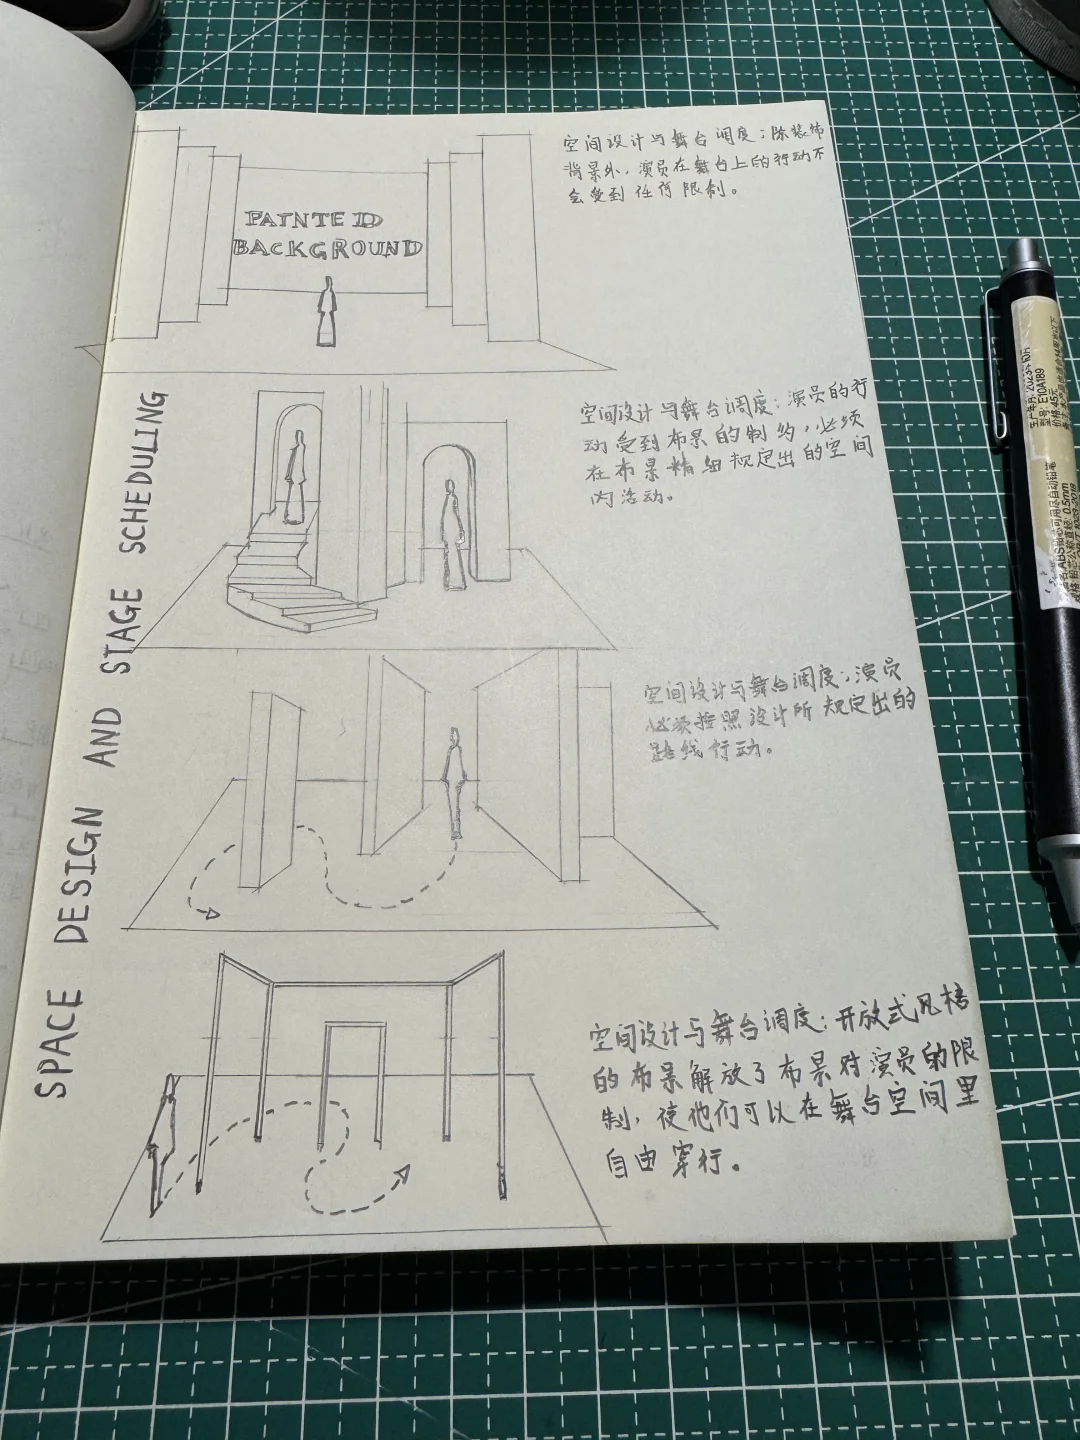 SPACE DESIGN AND STAGE SCHEDULING
PAINTED
BACKGROUND
空间设计与舞台调度：除装饰
背景外，演员在舞台上的行动不
会受到任何限制。
空间设计与舞台调度：演员的行
动受到布景的制约，必须
在布景精细规定出的空间
内活动。
空间设计与舞台调度：演员
必须按照设计所规定出的
路线行动。
空间设计与舞台调度：开放式风格
的布景解放了布景对演员的限
制，使他们可以在舞台空间里
自由穿行。
型号：E10A189
价格：45元
ABS轴芯可用尽自动铅笔
0.5mm